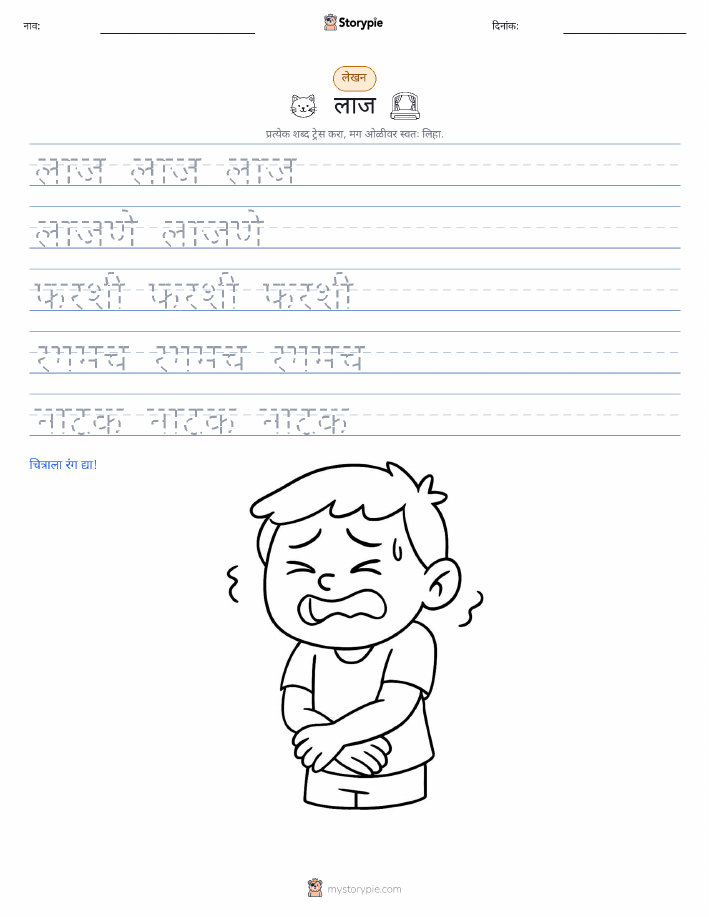 नाव:
Storypie
दिनांक:
लेखन
लाज
प्रत्येक शब्द ट्रेस करा, मग ओळीवर स्वतः लिहा.
लाज लाज लाज
लाजणे लाजणे
फरशी फरशी फरशी
रगमच रगमच रगमच
नाटक नाटक नाटक
चित्राला रंग द्या!
mystorypie.com